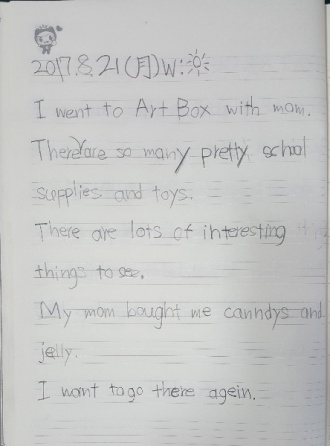 2017.8.21(月)W:☀
I went to Art Box with mom.
There are so many pretty school
supplies and toys.
There are lots of interesting
things to see.
My mom bought me canndys and
jelly.
I want to go there agein.